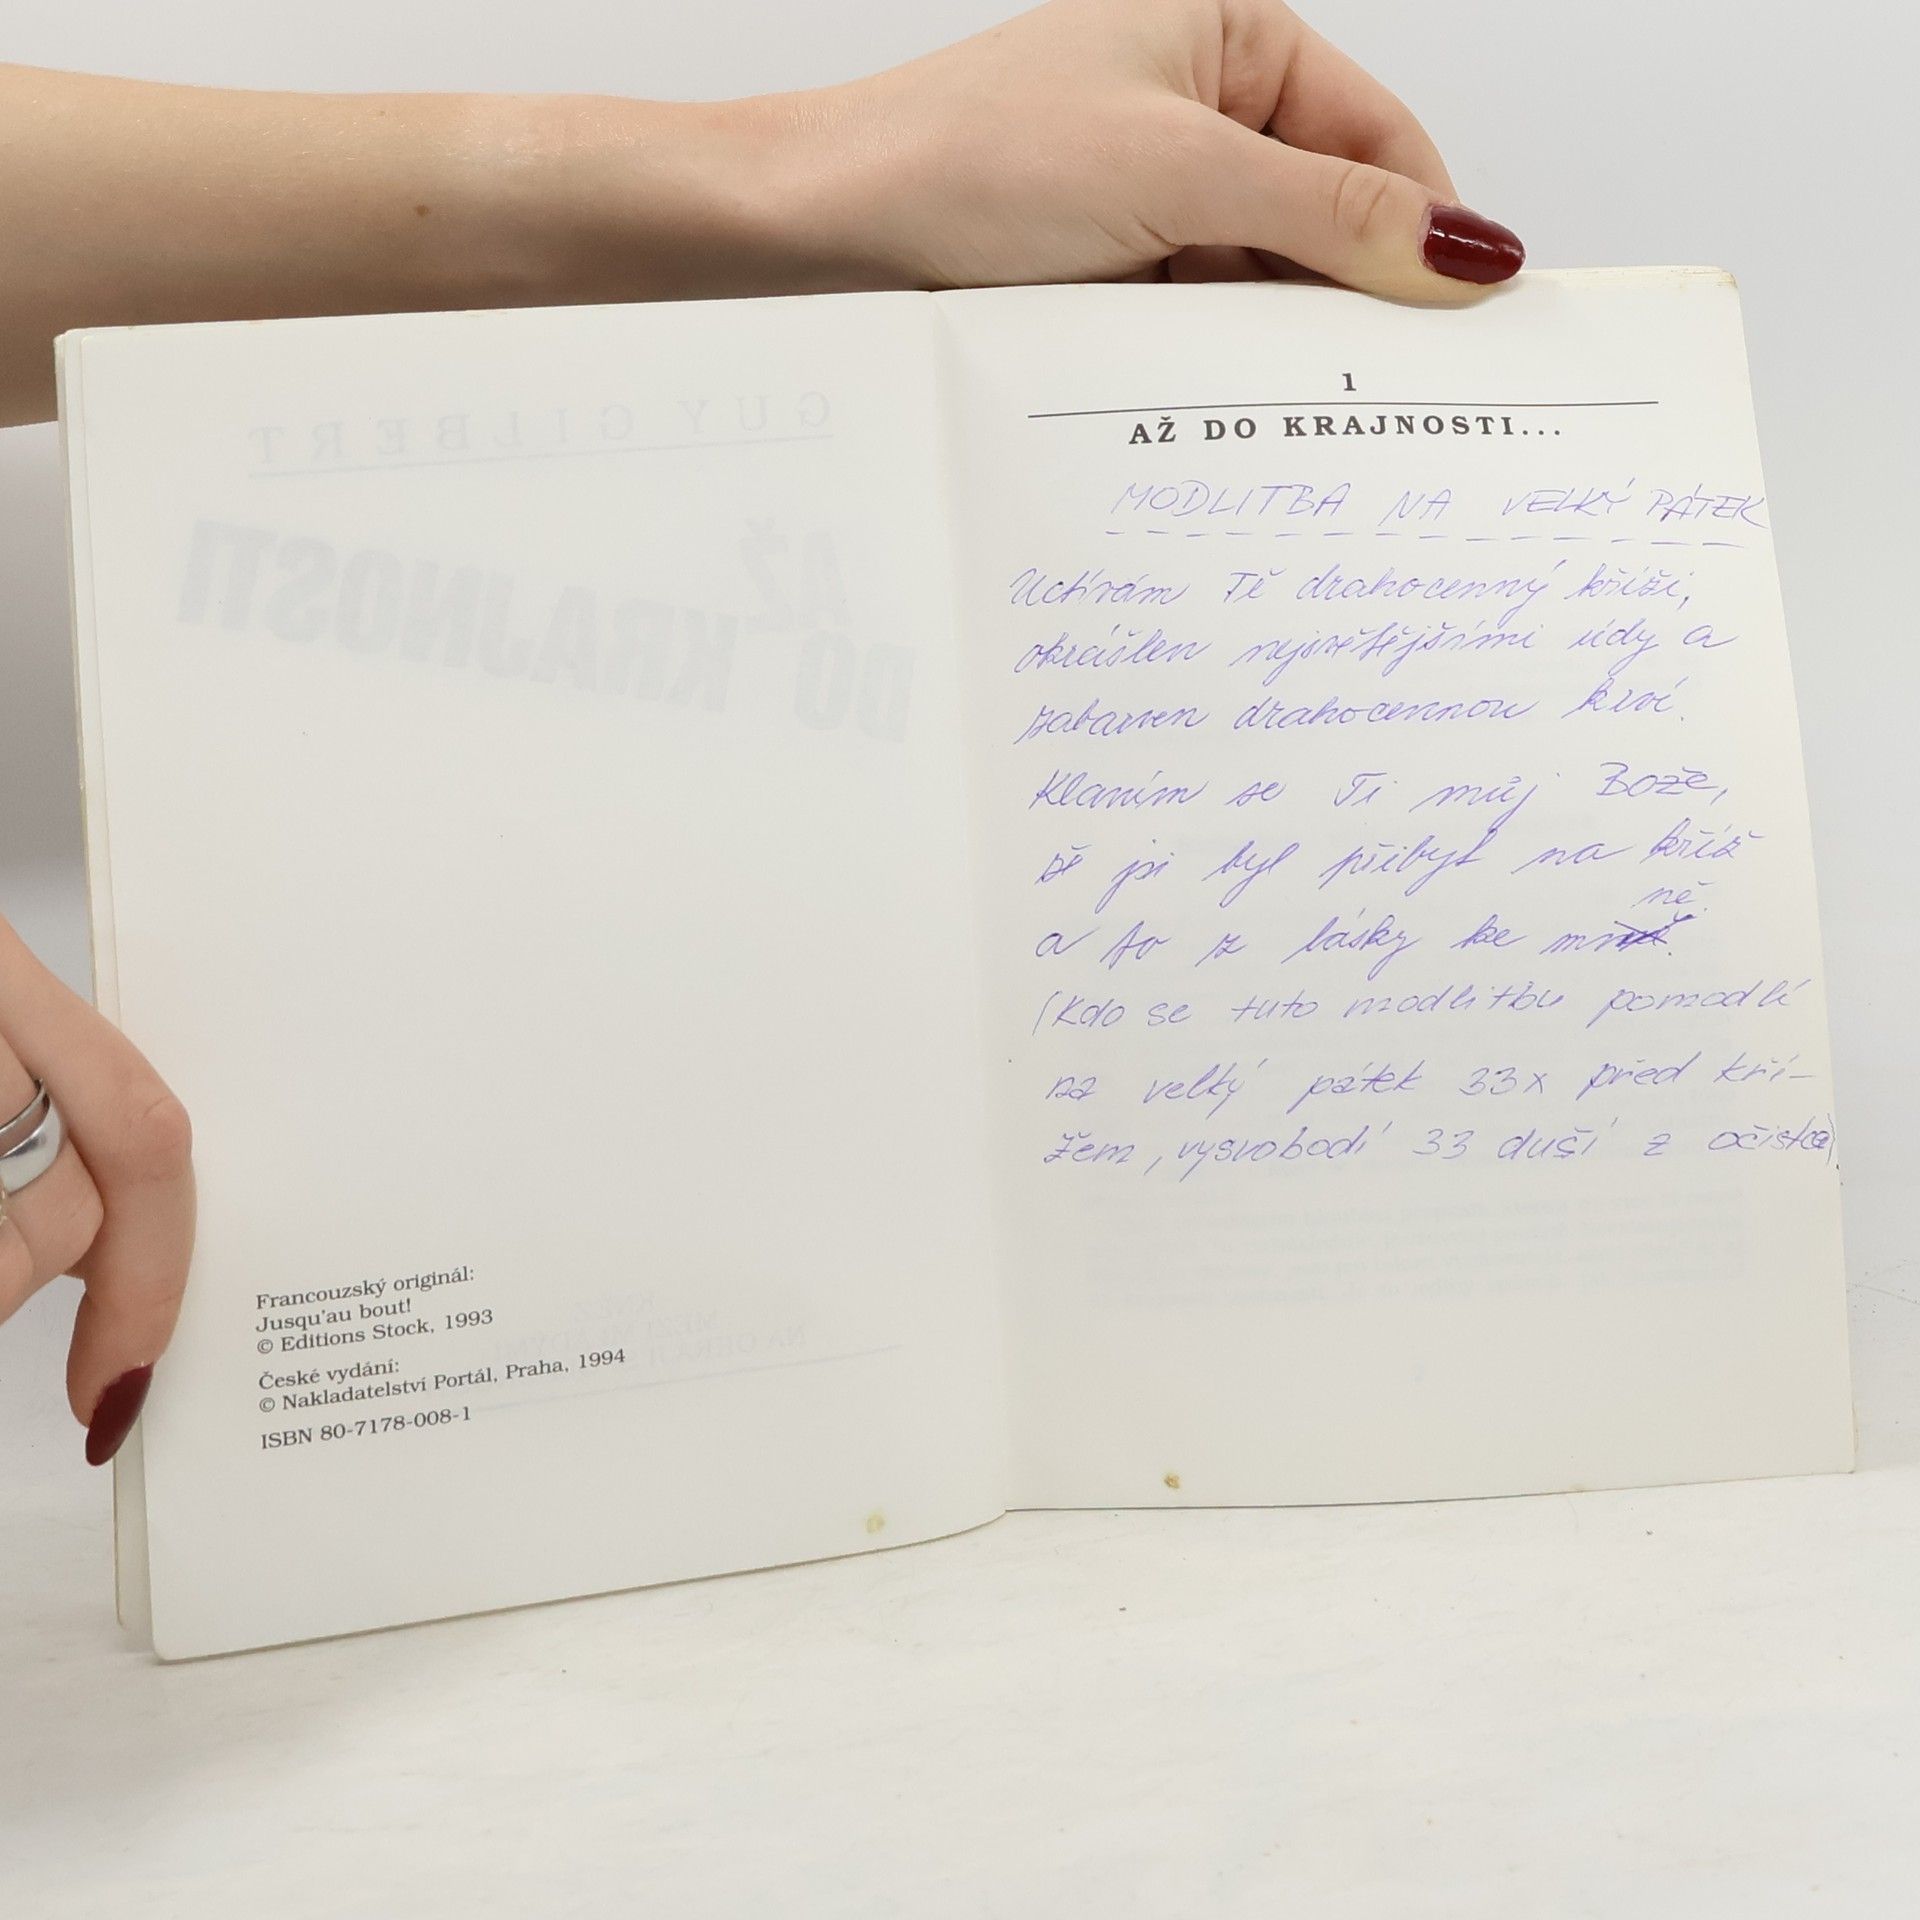 GUY GILBERT
AŽ
DO KRAJNOSTI
Francouzský originál:
Jusqu'au bout!
© Editions Stock, 1993
České vydání:
© Nakladatelství Portál, Praha, 1994
ISBN 80-7178-008-1
1
AŽ DO KRAJNOSTI...
MODLITBA NA VELKÝ PÁTEK
Uctívám Tě drahocenný kříži,
okrášlen nejsvětějšími údy a
zabarven drahocennou krví.
Klaním se Ti můj Bože,
že jsi byl přibyt na kříž
a to z lásky ke mně.
(Kdo se tuto modlitbu pomodlí
na velký pátek 33x před kří-
žem, vysvobodí 33 duší z očistce)